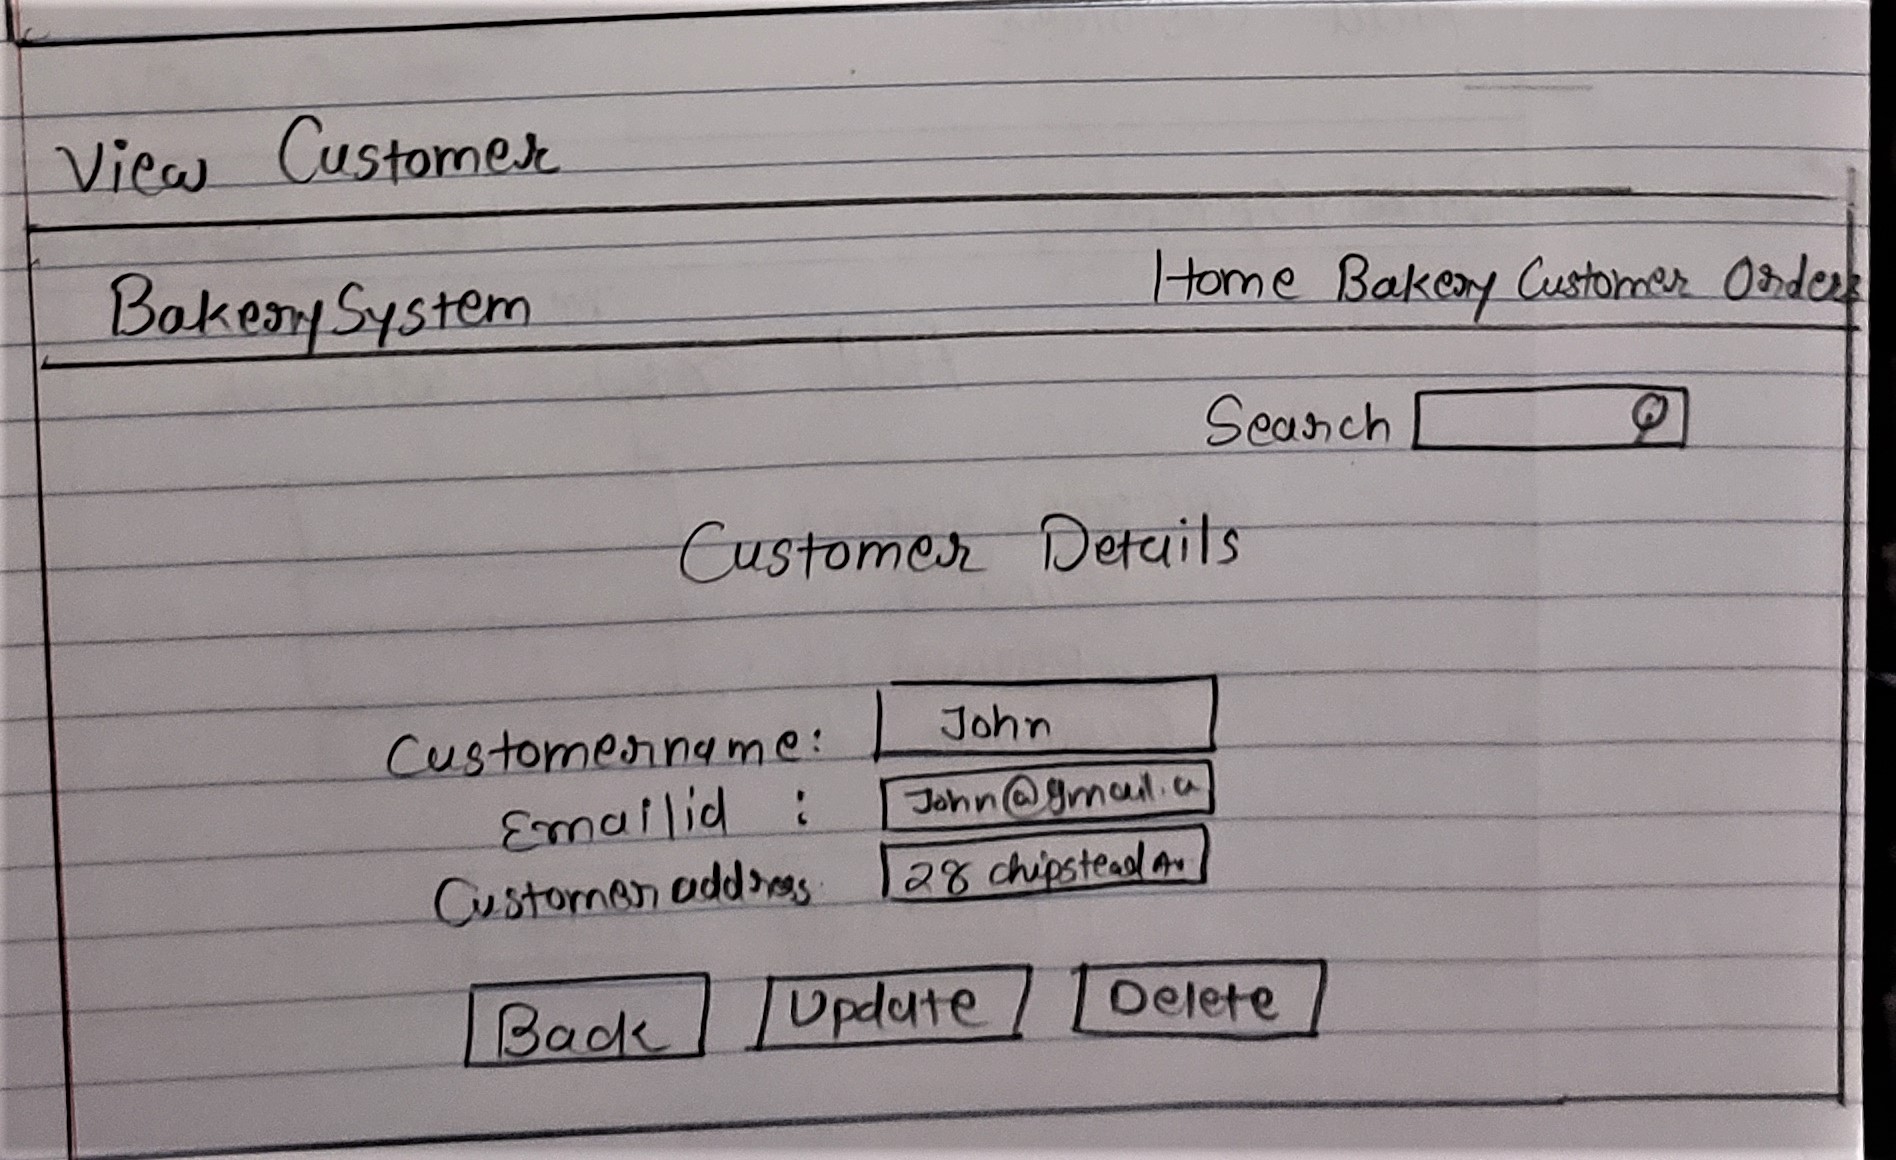 View Customer
Bakery System
Home Bakery Customer Orders
Search
Customer Details
Customername: John
Emailid : John@gmail.c
Customer address 28 chipstead Av
Back Update Delete